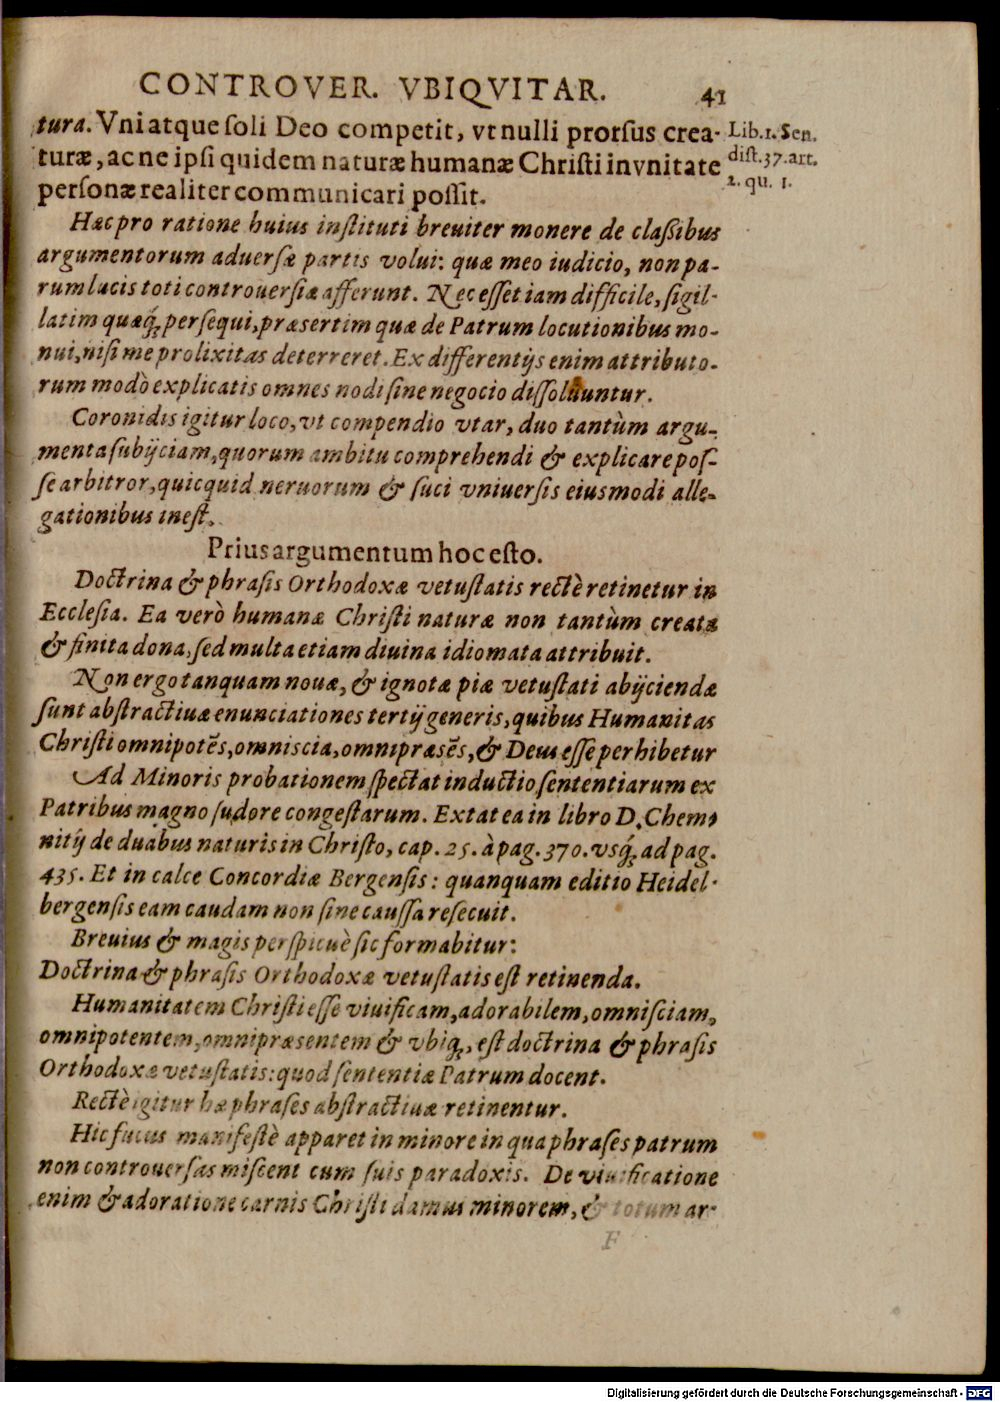 CONTROVER. VBIQVITAR. 41
tura. Vni atque soli Deo competit, vt nulli prorsus crea-
turæ, ac ne ipsi quidem naturæ humanæ Christi in vnitate
personæ realiter communicari possit.
Lib. 1. Sen.
dist. 37. art.
2. qu. 1.
Hæc pro ratione huius instituti breuiter monere de classibus
argumentorum aduersæ partis volui: quæ meo iudicio, non pa-
rum lucis toti controuersiæ afferunt. Nec esset iam difficile, sigil-
latim quæq́; persequi, præsertim quæ de Patrum locutionibus mo-
nui, nisi me prolixitas deterreret. Ex differentijs enim attributo-
rum modò explicatis omnes nodi sine negocio dissoluuntur.
Coronidis igitur loco, vt compendio vtar, duo tantùm argu-
menta subijciam, quorum ambitu comprehendi & explicare pos-
se arbitror, quicquid neruorum & suci vniuersis eiusmodi alle-
gationibus inest.
Prius argumentum hoc esto.
Doctrina & phrasis Orthodoxæ vetustatis rectè retinetur in
Ecclesia. Ea verò humanæ Christi naturæ non tantùm creata
& finita dona, sed multa etiam diuina idiomata attribuit.
Non ergo tanquam nouæ, & ignotæ piæ vetustati abijciendæ
sunt abstractiuæ enunciationes tertij generis, quibus Humanitas
Christi omnipotēs, omniscia, omnipræsēs, & Deus esse perhibetur
Ad Minoris probationem spectat inductio sententiarum ex
Patribus magno sudore congestarum. Extat ea in libro D. Chem-
nitij de duabus naturis in Christo, cap. 25. à pag. 370. vsq́; ad pag.
435. Et in calce Concordiæ Bergensis: quanquam editio Heidel-
bergensis eam caudam non sine caussa resecuit.
Breuius & magis perspicuè sic formabitur:
Doctrina & phrasis Orthodoxæ vetustatis est retinenda.
Humanitatem Christi esse viuificam, adorabilem, omnisciam,
omnipotentem, omnipræsentem & vbiq́;, est doctrina & phrasis
Orthodoxæ vetustatis: quod sententiæ Patrum docent.
Rectè igitur hæ phrases abstractiuæ retinentur.
Hic fucus manifestè apparet in minore in qua phrases patrum
non controuersas miscent cum suis paradoxis. De viuificatione
enim & adoratione carnis Christi damus minorem, & totum ar-
F
Digitalisierung gefördert durch die Deutsche Forschungsgemeinschaft - DFG